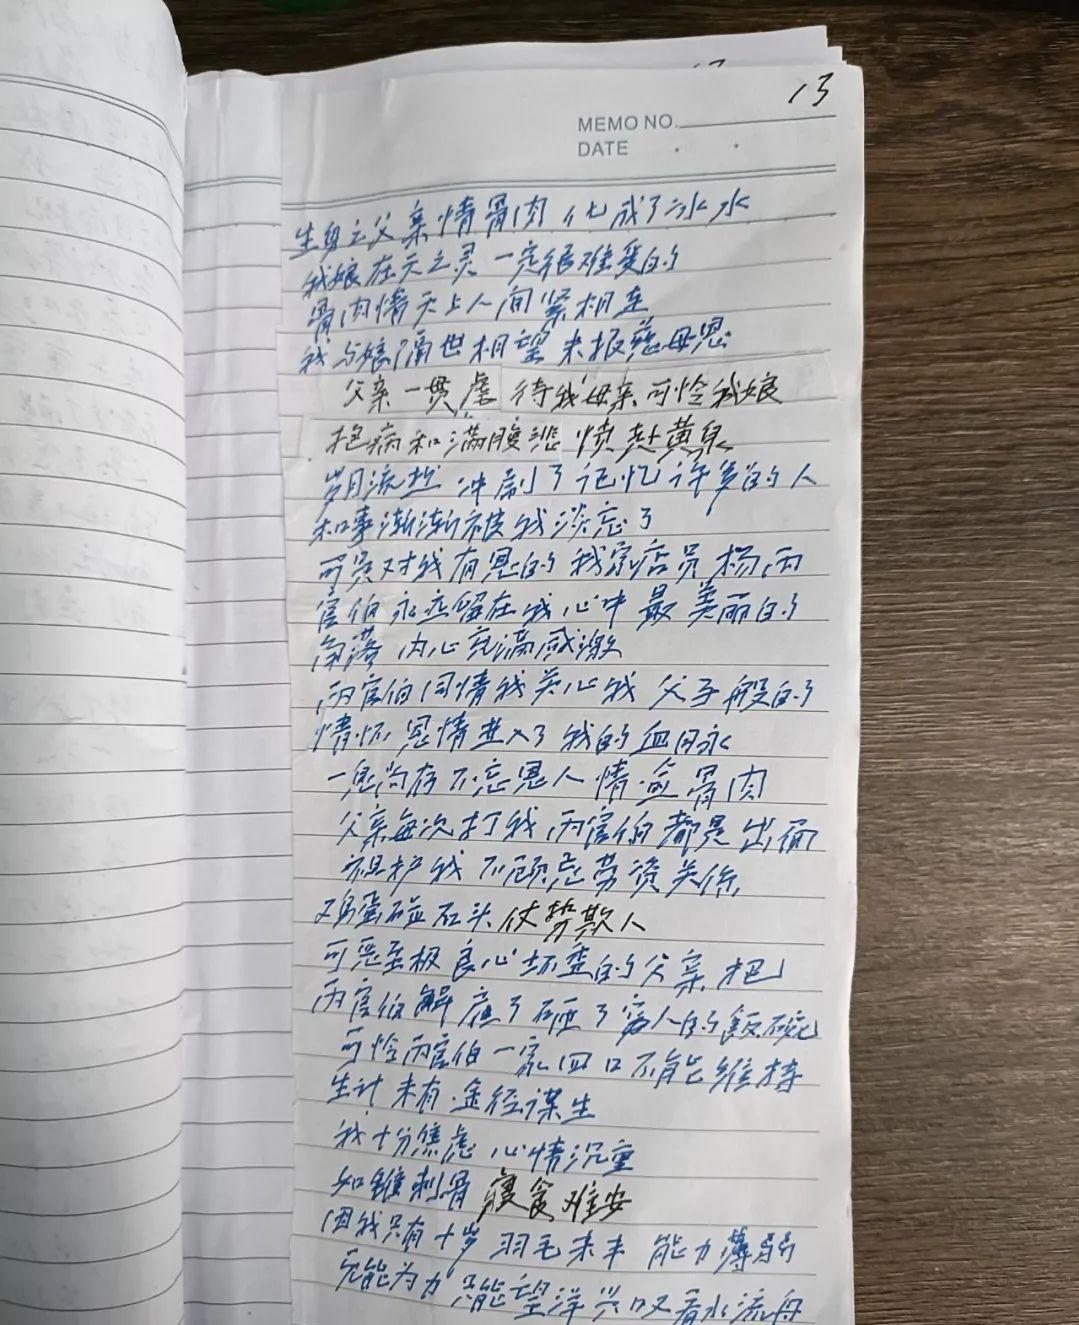 13
MEMO NO.
DATE
生身之父亲情骨肉化成了冰水
我娘在天之灵一定很难受的
骨肉情天上人间紧相连
我与娘隔世相望未报慈母恩
父亲一贯虐待我母亲可怜我娘
抱病和满腹悲愤赴黄泉
岁月流逝冲刷了记忆许多的人
和事渐渐被我淡忘了
可是对我有恩的我家店员杨丙
官伯永远留在我心中最美丽的
角落内心充满感激
丙官伯同情我关心我父子般的
情怀恩情并入了我的血脉
一息尚存不忘恩人情逾骨肉
父亲每次打我丙官伯都是出面
袒护我不顾忌劳资关系
鸡蛋碰石头仗势欺人
可恶至极良心坏透的父亲把
丙官伯解雇了砸了穷人的飯碗
可怜丙官伯一家四口不能维持
生计未有途径谋生
我十分焦虑心情沉重
如锥刺骨寝食难安
因我只有十岁羽毛未丰能力薄弱
无能为力只能望洋兴叹看水流舟